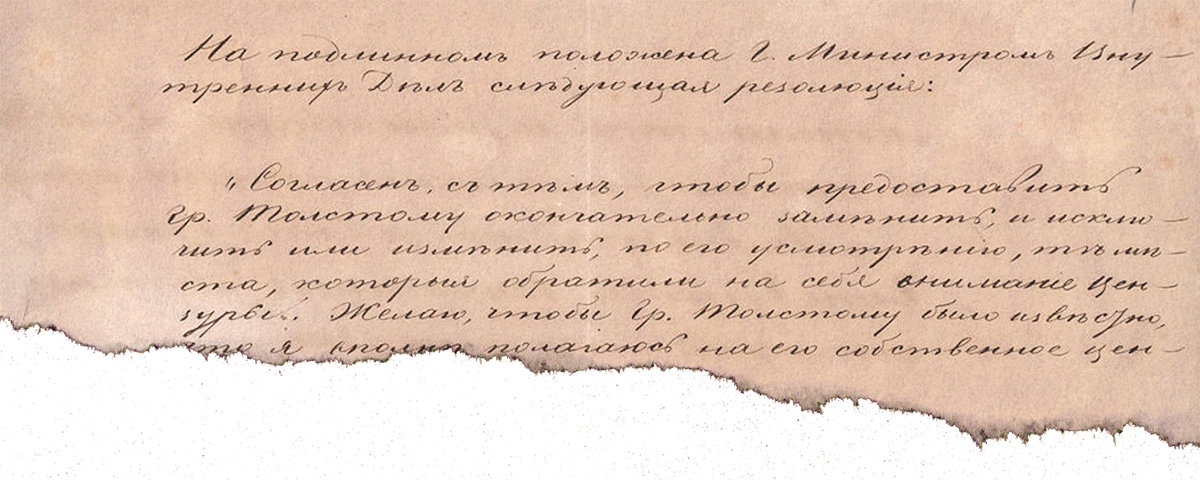 На подлинномъ положена Г. Министромъ Вну-
треннихъ Дѣлъ слѣдующая резолюція:
„Согласенъ, съ тѣмъ, чтобы предоставить
Гр. Толстому окончательно замѣнить, и исклю-
чить или измѣнить, по его усмотрѣнію, тѣ мѣ-
ста, которыя обратили на себя вниманіе цен-
зуры. Желаю, чтобы Гр. Толстому было извѣстно,
что я вполнѣ полагаюсь на его собственное цен-